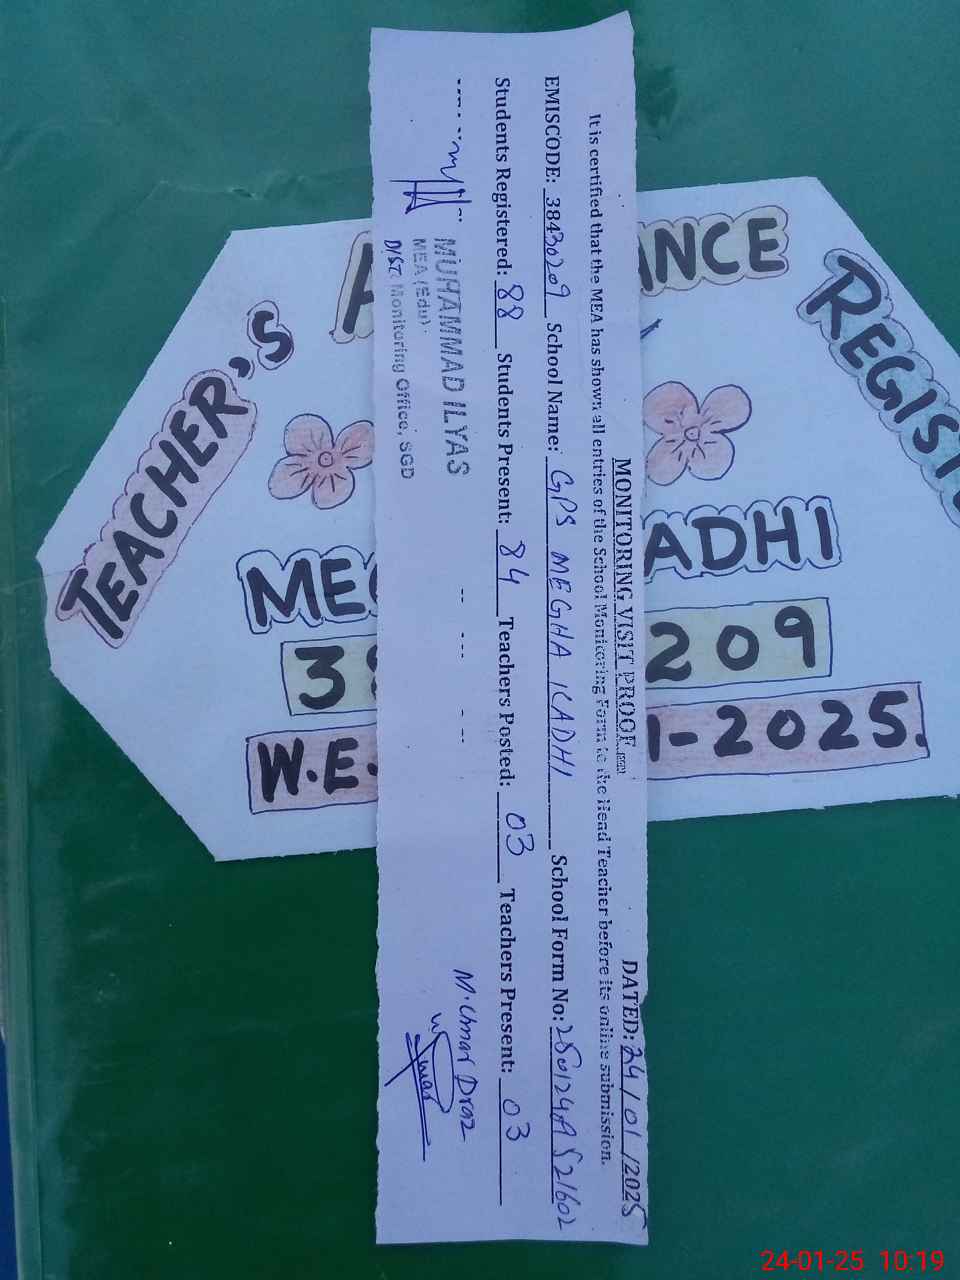 MONITORING VISIT PROOF
DATED: 24/01/2025
It is certified that the MEA has shown all entries of the School Monitoring Form to the Head Teacher before its online submission.
EMISCODE: 38430209 School Name: GPS MEGHA KADHI School Form No:
Students Registered: 88 Students Present: 84 Teachers Posted: 03 Teachers Present: 03
MUHAMMAD ILYAS
MEA (Edu).
DIST: Monitoring Office, SGD
M. Umar Draz
TEACHER'S A NCE REGIS
ME ADHI
3 209
W.E. 1-2025.
24-01-25 10:19